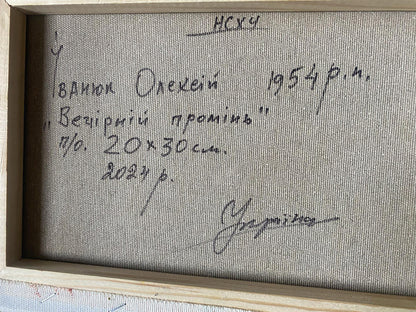 НСХУ
Іванюк Олексій 1954 р.н.
„Вечірній промінь"
п/о. 20×30см.
2024р.
Україна